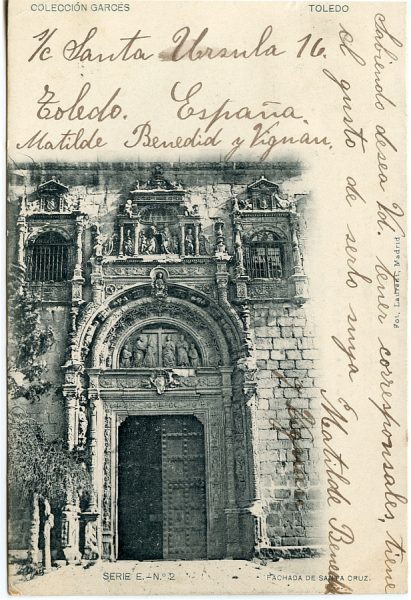 COLECCIÓN GARCÉS
TOLEDO
s/c Santa Ursula 16.
Toledo. España.
Matilde Benedid y Vignau.
Sabiendo desea Vd. tener corresponsales, tiene
el gusto de serlo suya Matilde Benedid
y Vignau
Fot. Laurent, Madrid
SERIE E.-N.º 2
FACHADA DE SANTA CRUZ.